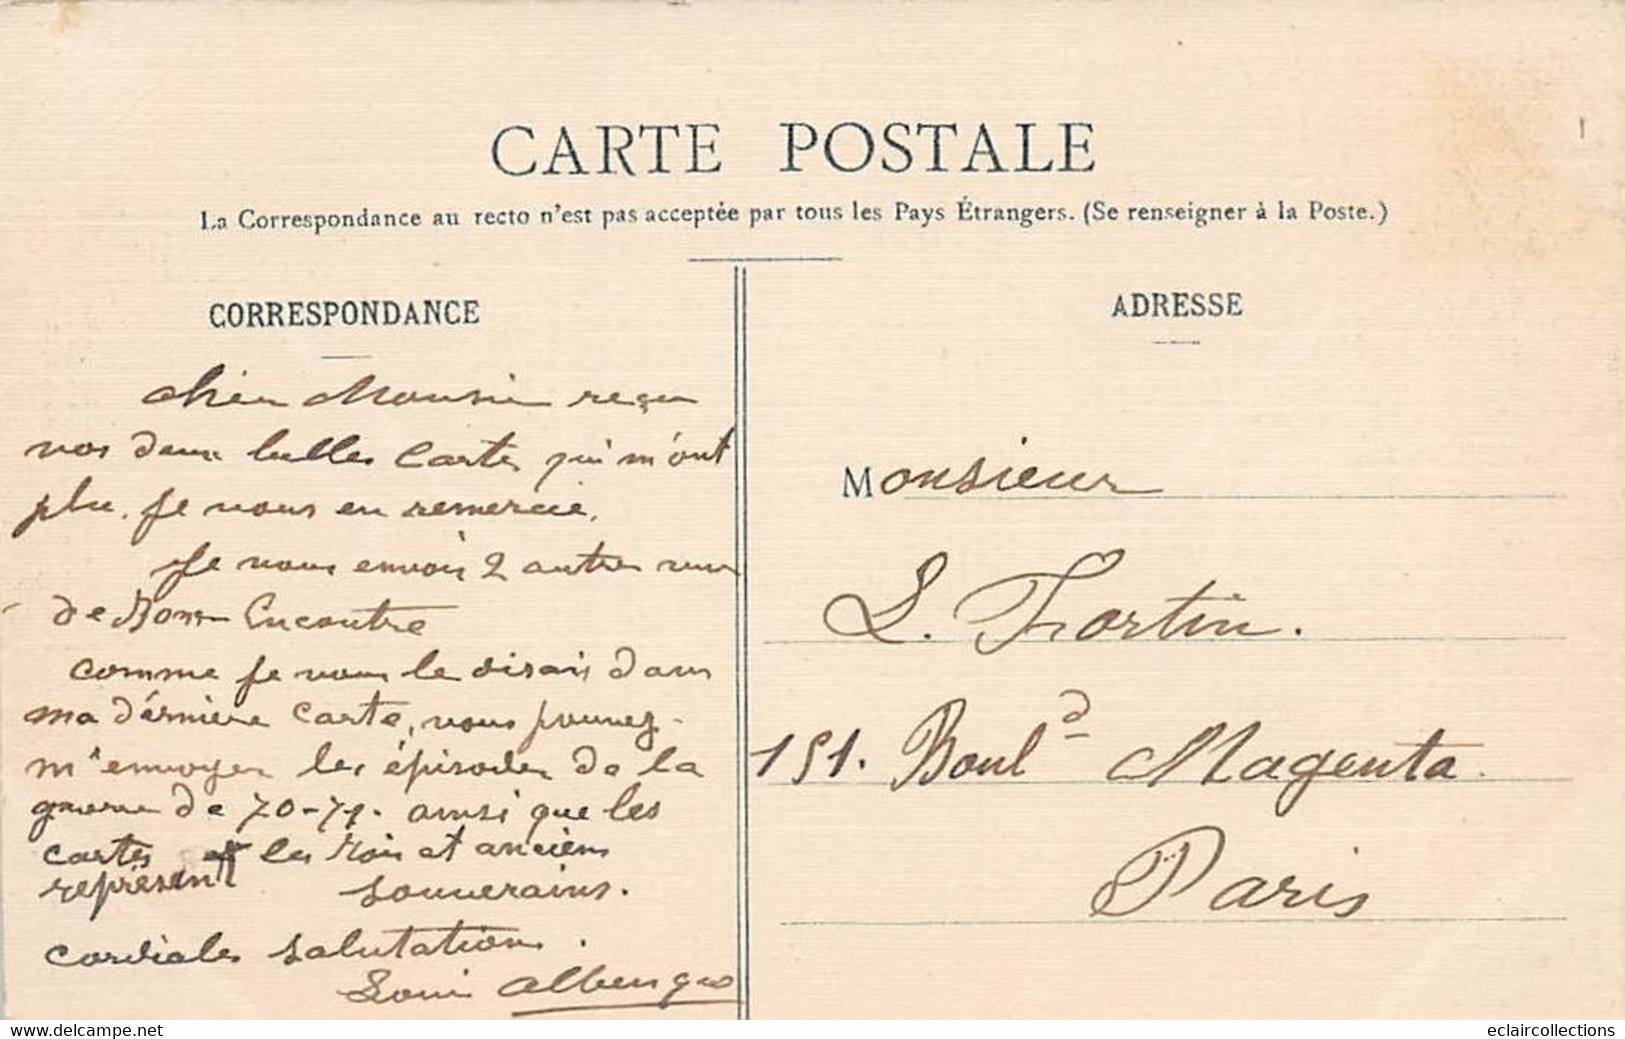 CARTE POSTALE
La Correspondance au recto n'est pas acceptée par tous les Pays Étrangers. (Se renseigner à la Poste.)
CORRESPONDANCE
cher Monsieur reçu
vos deux belles cartes qui m'ont
plu. Je vous en remercie.
Je vous envois 2 autres vues
de Bon Encontre
comme je vous le disais dans
ma dérnière carte, vous pouvez
m'envoyer les épisodes de la
guerre de 70-71. ainsi que les
cartes les Rois et anciens
représentt souverains.
cordiales salutations.
Louis
ADRESSE
Monsieur
L. Fortin.
151. Boul^d Magenta.
Paris
www.delcampe.net
eclaircollections